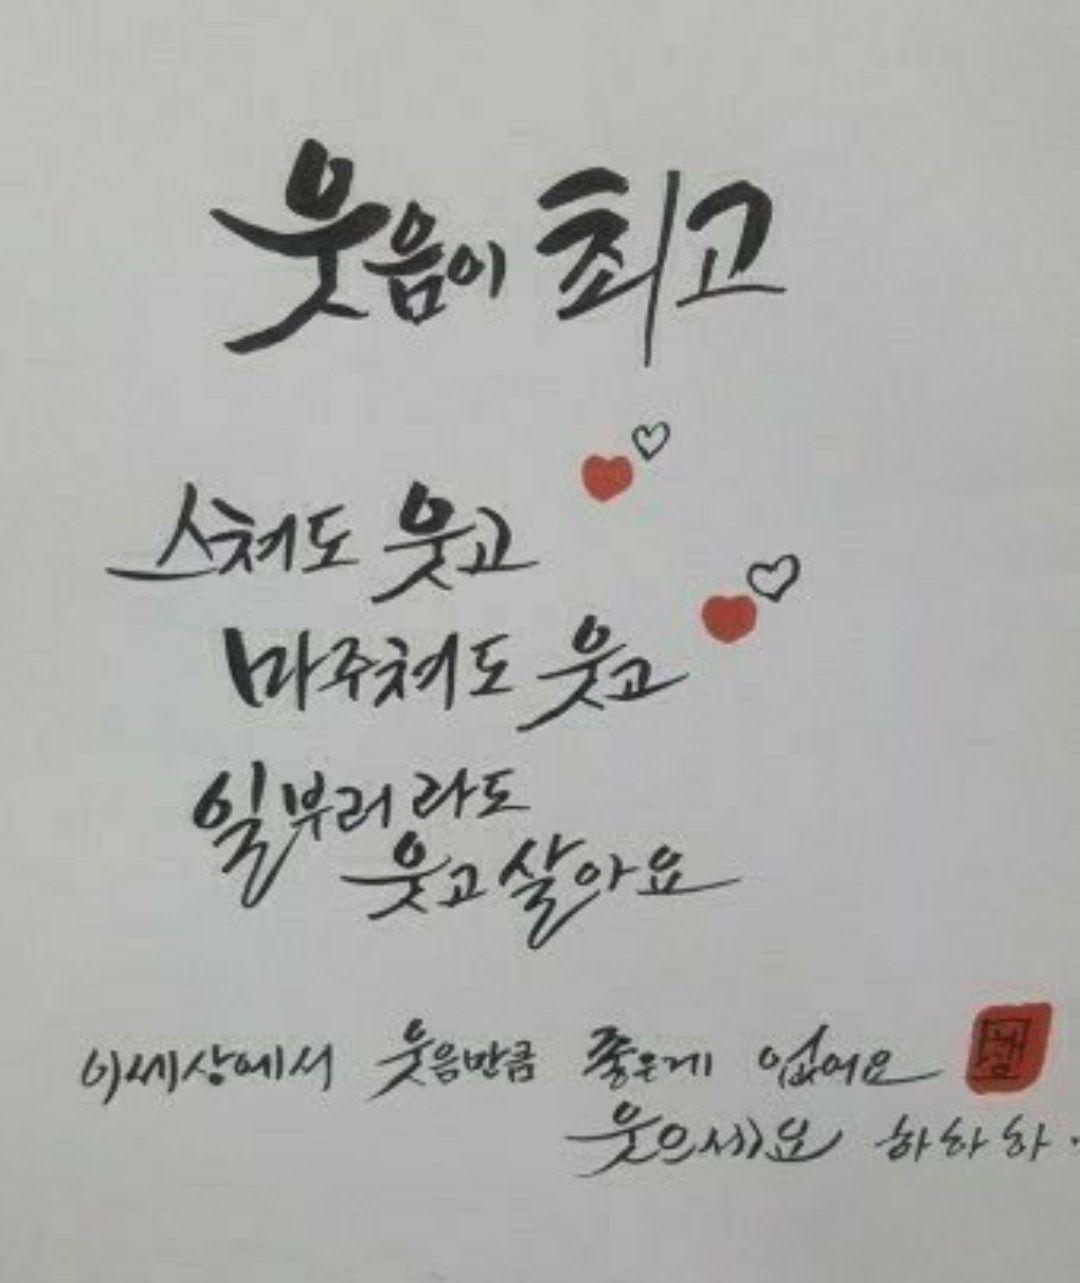 웃음이 최고
스쳐도 웃고
마주쳐도 웃고
일부러라도
웃고 살아요
이세상에서 웃음만큼 좋은게 없어요
웃으세요 하하하